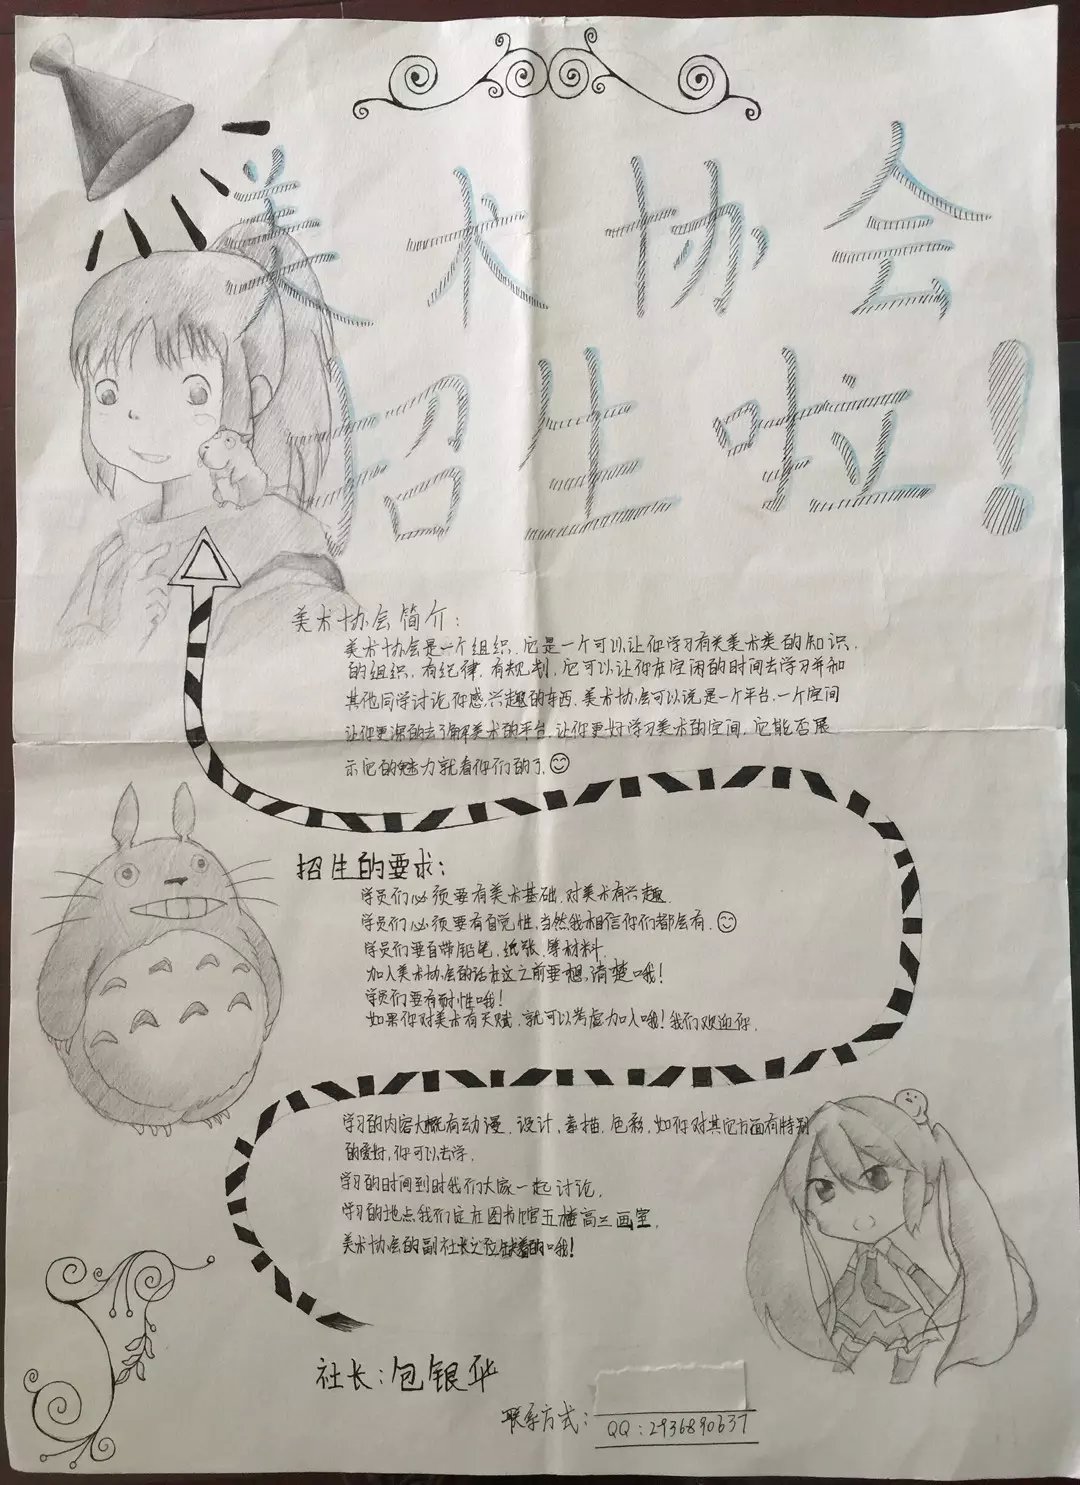 美术协会
招生啦!
美术协会简介:
美术协会是一个组织,它是一个可以让你学习有关美术类的知识,
的组织,有纪律,有规划,它可以让你在空闲的时间去学习并和
其他同学讨论你感兴趣的东西,美术协会可以说是一个平台,一个空间
让你更深的去了解美术的平台,让你更好学习美术的空间,它能否展
示它的魅力就看你们的了
招生的要求:
学员们必须要有美术基础,对美术有兴趣
学员们必须要有自觉性,当然我相信你们都会有.
学员们要自带铅笔,纸张,等材料
加入美术协会的话在这之前要想清楚哦!
学员们要有耐性哦!
如果你对美术有天赋,就可以考虑加入哦!我们欢迎你.
学习的内容大概有动漫,设计,素描,色彩,如你对其它方面有特别
的爱好,你可以去学.
学习的时间到时我们大家一起讨论.
学习的地点我们定在图书馆五楼高三画室.
美术协会的副社长之位缺着的哦!
社长:包银华
联系方式:
QQ:2936890637